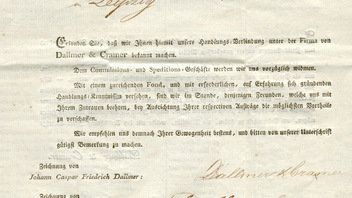 Leipzig
Erlauben Sie, daß wir Ihnen hiemit unsere Handlungs-Verbindung unter der Firma von
Dallmer & Cramer bekannt machen.
Dem Commissions- und Speditions-Geschäft werden wir uns vorzüglich widmen.
Mit einem zureichenden Fond, und mit erforderlichen, auf Erfahrung sich gründenden
Handlungs-Kenntnissen versehen, sind wir im Stande, denenjenigen Freunden, welche uns mit
Ihrem Zutrauen beehren, bey Ausrichtung Ihrer respectiven Aufträge die möglichsten Vortheile
zu verschaffen.
Wir empfehlen uns demnach Ihrer Gewogenheit bestens, und bitten von unserer Unterschrift
gütigst Bemerkung zu machen.
Zeichnung von
Johann Caspar Friedrich Dallmer:
Dallmer & Cramer
Zeichnung von